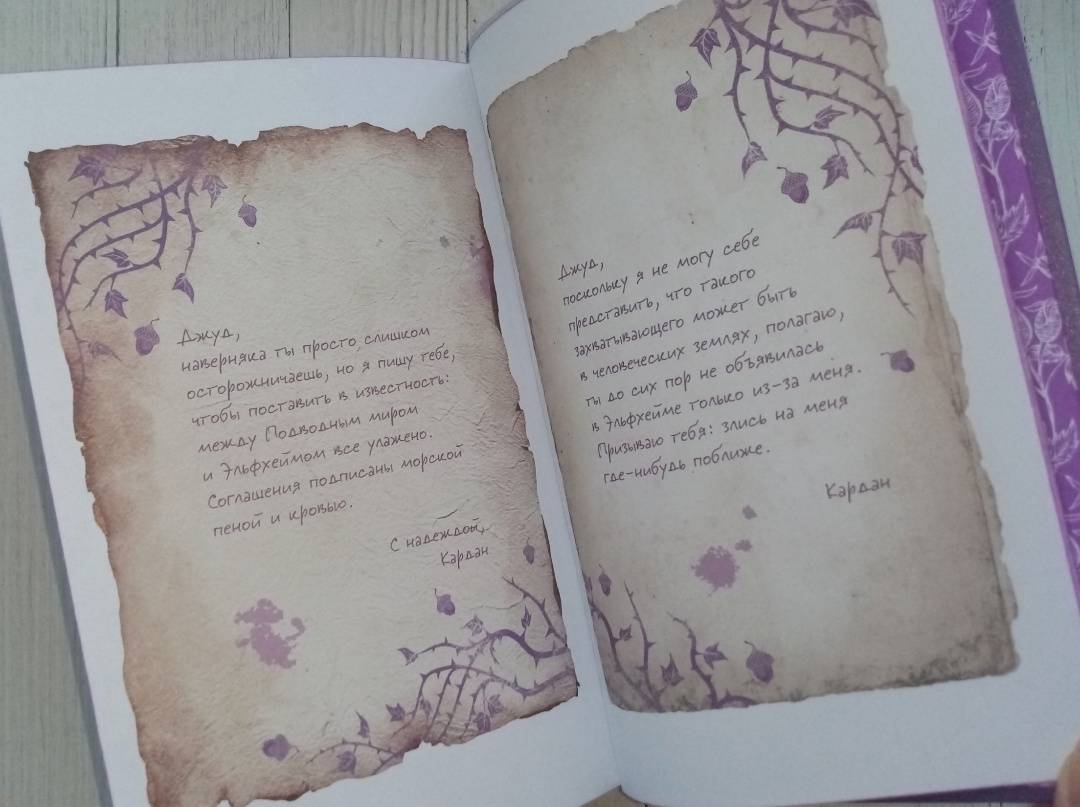 Джуд,
наверняка ты просто слишком
осторожничаешь, но я пишу тебе,
чтобы поставить в известность:
между Подводным миром
и Эльфхеймом все улажено.
Соглашения подписаны морской
пеной и кровью.
С надеждой,
Кардан
Джуд,
поскольку я не могу себе
представить, что такого
захватывающего может быть
в человеческих землях, полагаю,
ты до сих пор не объявилась
в Эльфхейме только из-за меня.
Призываю тебя: злись на меня
где-нибудь поближе.
Кардан